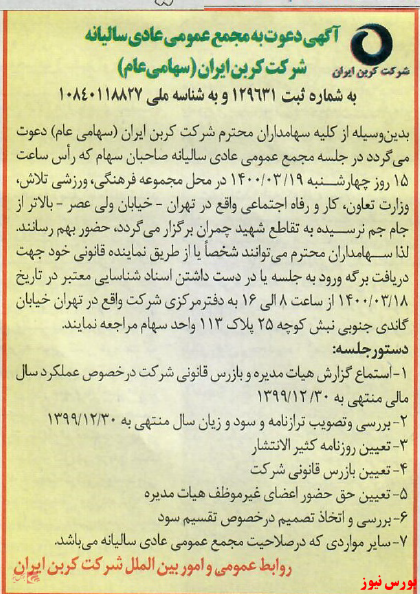 آگهی دعوت به مجمع عمومی عادی سالیانه
شرکت کربن ایران (سهامی عام)
شرکت کربن ایران
به شماره ثبت ۱۲۹۶۳۱ و به شناسه ملی ۱۰۸۴۰۱۱۸۸۲۷
بدین‌وسیله از کلیه سهامداران محترم شرکت کربن ایران (سهامی عام) دعوت
می‌گردد در جلسه مجمع عمومی عادی سالیانه صاحبان سهام که رأس ساعت
۱۵ روز چهارشنبه ۱۴۰۰/۰۳/۱۹ در محل مجموعه فرهنگی، ورزشی تلاش،
وزارت تعاون، کار و رفاه اجتماعی واقع در تهران - خیابان ولی عصر - بالاتر از
جام جم نرسیده به تقاطع شهید چمران برگزار می‌گردد، حضور بهم رسانند.
لذا سهامداران محترم می‌توانند شخصاً یا از طریق نماینده قانونی خود جهت
دریافت برگه ورود به جلسه با در دست داشتن اسناد شناسایی معتبر در تاریخ
۱۴۰۰/۰۳/۱۸ از ساعت ۸ الی ۱۶ به دفترمرکزی شرکت واقع در تهران خیابان
گاندی جنوبی نبش کوچه ۲۵ پلاک ۱۱۳ واحد سهام مراجعه نمایند.
دستورجلسه:
۱- استماع گزارش هیات مدیره و بازرس قانونی شرکت درخصوص عملکرد سال
مالی منتهی به ۱۳۹۹/۱۲/۳۰
۲- بررسی وتصویب ترازنامه و سود و زیان سال منتهی به ۱۳۹۹/۱۲/۳۰
۳- تعیین روزنامه کثیر الانتشار
۴- تعیین بازرس قانونی شرکت
۵- تعیین حق حضور اعضای غیرموظف هیات مدیره
۶- بررسی و اتخاذ تصمیم درخصوص تقسیم سود
۷- سایر مواردی که درصلاحیت مجمع عمومی عادی سالیانه می‌باشد.
روابط عمومی و امور بین الملل شرکت کربن ایران
بورس نیوز